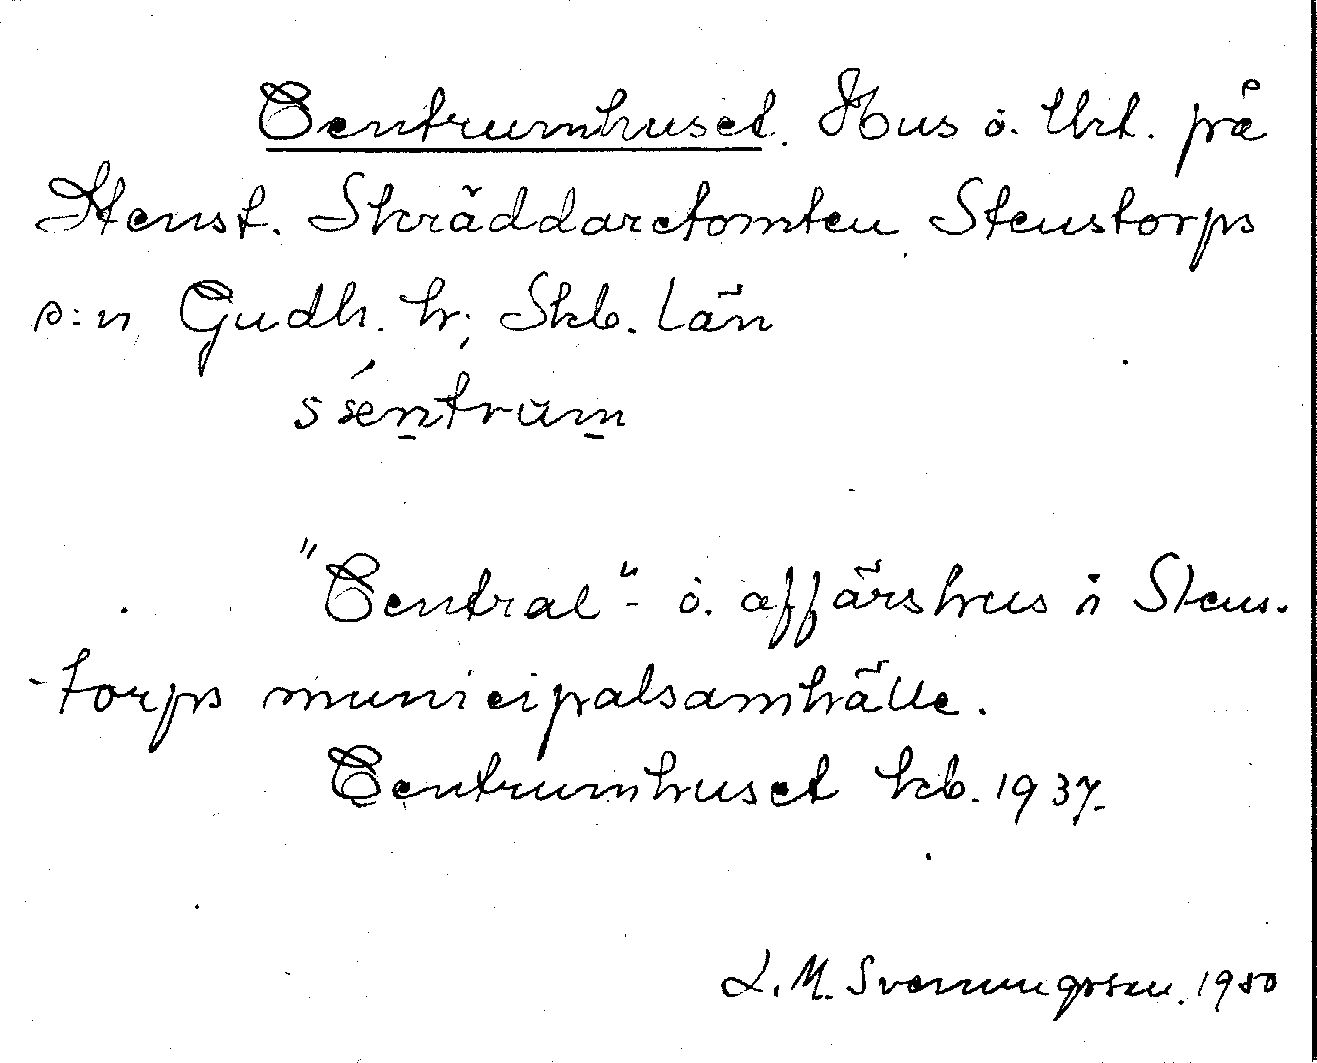 Centrumhuset. Hus o. tht. på
Henst. Skräddaretomten Stenstorps
s:n Gudh. hr; Skb. län
séntrum
"Central"- o. affärshus i Stens-
-torps municipalsamhälle.
Centrumhuset kb. 1937.
L. M. Svenungsson. 1950